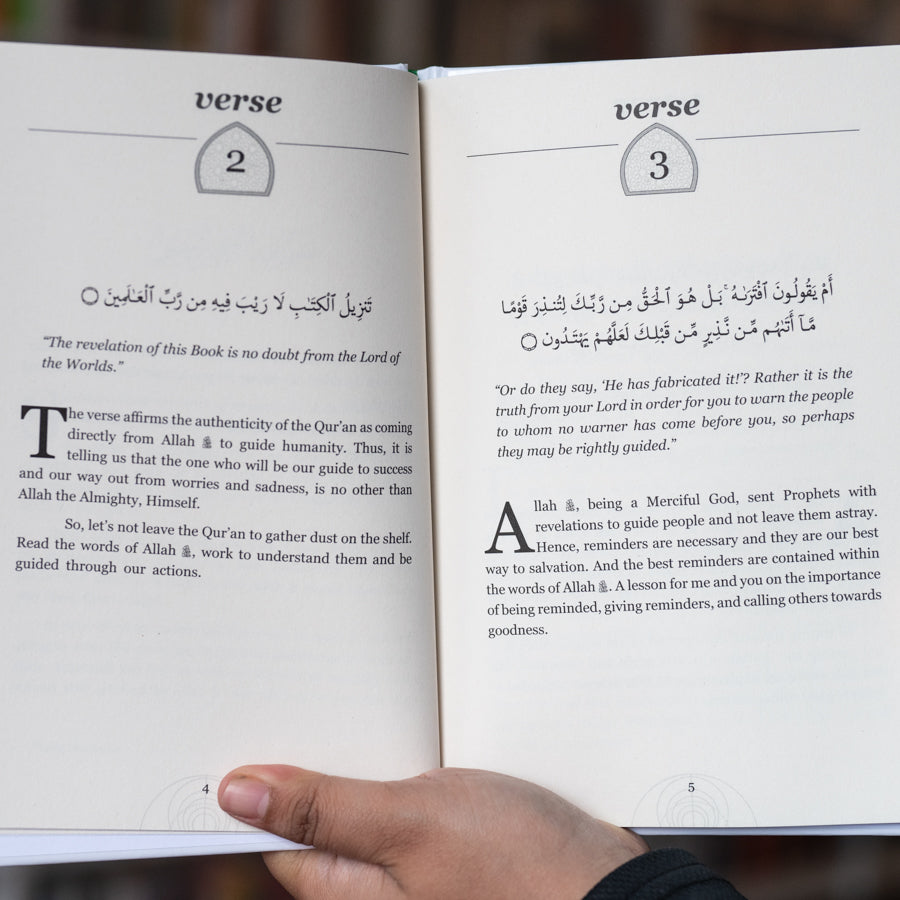 verse
2
تَنزِيلُ ٱلْكِتَٰبِ لَا رَيْبَ فِيهِ مِن رَّبِّ ٱلْعَٰلَمِينَ ۝
“The revelation of this Book is no doubt from the Lord of
the Worlds.”
The verse affirms the authenticity of the Qur’an as coming
directly from Allah ﷻ to guide humanity. Thus, it is
telling us that the one who will be our guide to success
and our way out from worries and sadness, is no other than
Allah the Almighty, Himself.
So, let’s not leave the Qur’an to gather dust on the shelf.
Read the words of Allah ﷻ, work to understand them and be
guided through our actions.
4
verse
3
أَمْ يَقُولُونَ ٱفْتَرَىٰهُ ۚ بَلْ هُوَ ٱلْحَقُّ مِن رَّبِّكَ لِتُنذِرَ قَوْمًا
مَّآ أَتَىٰهُم مِّن نَّذِيرٍ مِّن قَبْلِكَ لَعَلَّهُمْ يَهْتَدُونَ ۝
“Or do they say, ‘He has fabricated it!’? Rather it is the
truth from your Lord in order for you to warn the people
to whom no warner has come before you, so perhaps
they may be rightly guided.”
Allah ﷻ, being a Merciful God, sent Prophets with
revelations to guide people and not leave them astray.
Hence, reminders are necessary and they are our best
way to salvation. And the best reminders are contained within
the words of Allah ﷻ. A lesson for me and you on the importance
of being reminded, giving reminders, and calling others towards
goodness.
5